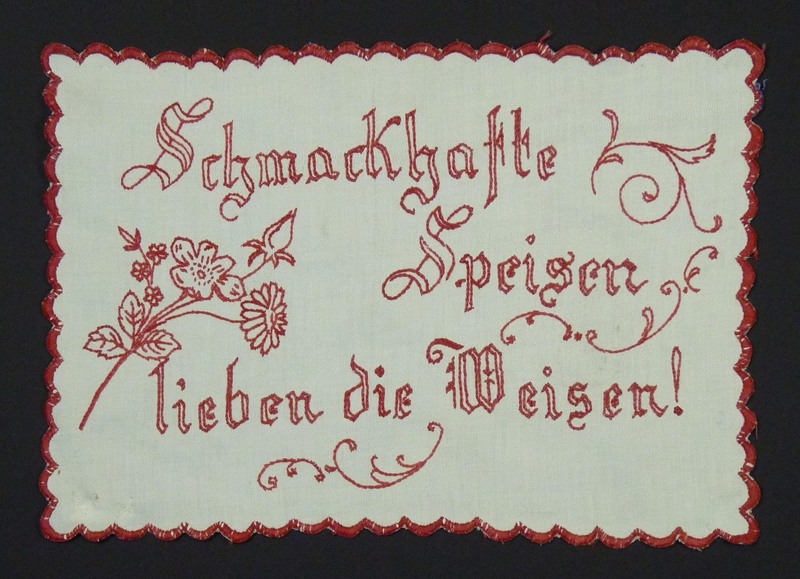 Schmackhafte
Speisen
lieben die Weisen!